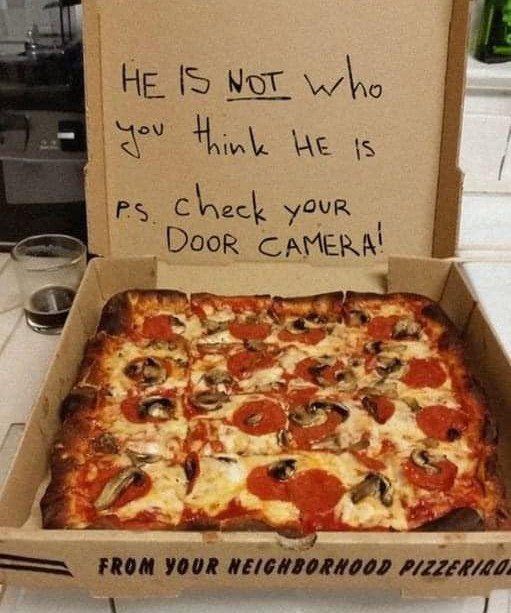 HE IS NOT who
you think HE IS
P.S. check YOUR
DOOR CAMERA!
FROM YOUR NEIGHBORHOOD